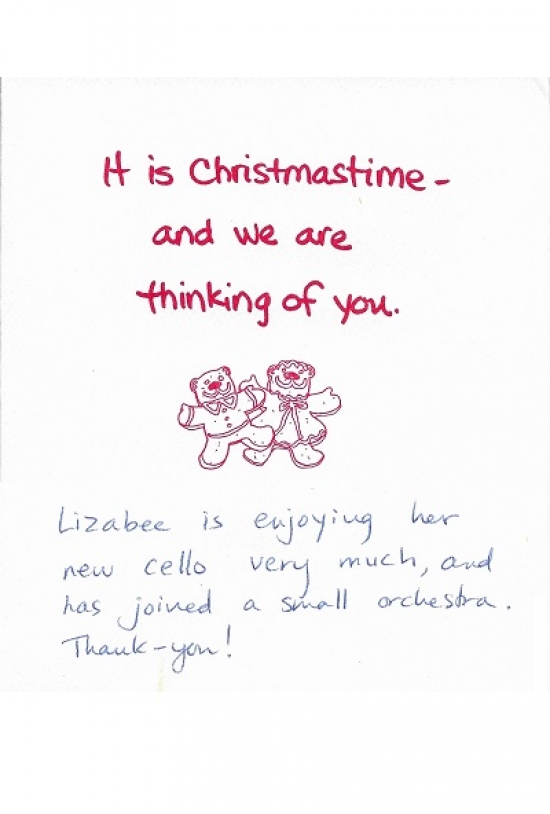 It is Christmastime -
and we are
thinking of you.
Lizabee is enjoying her
new cello very much, and
has joined a small orchestra.
Thank-you!